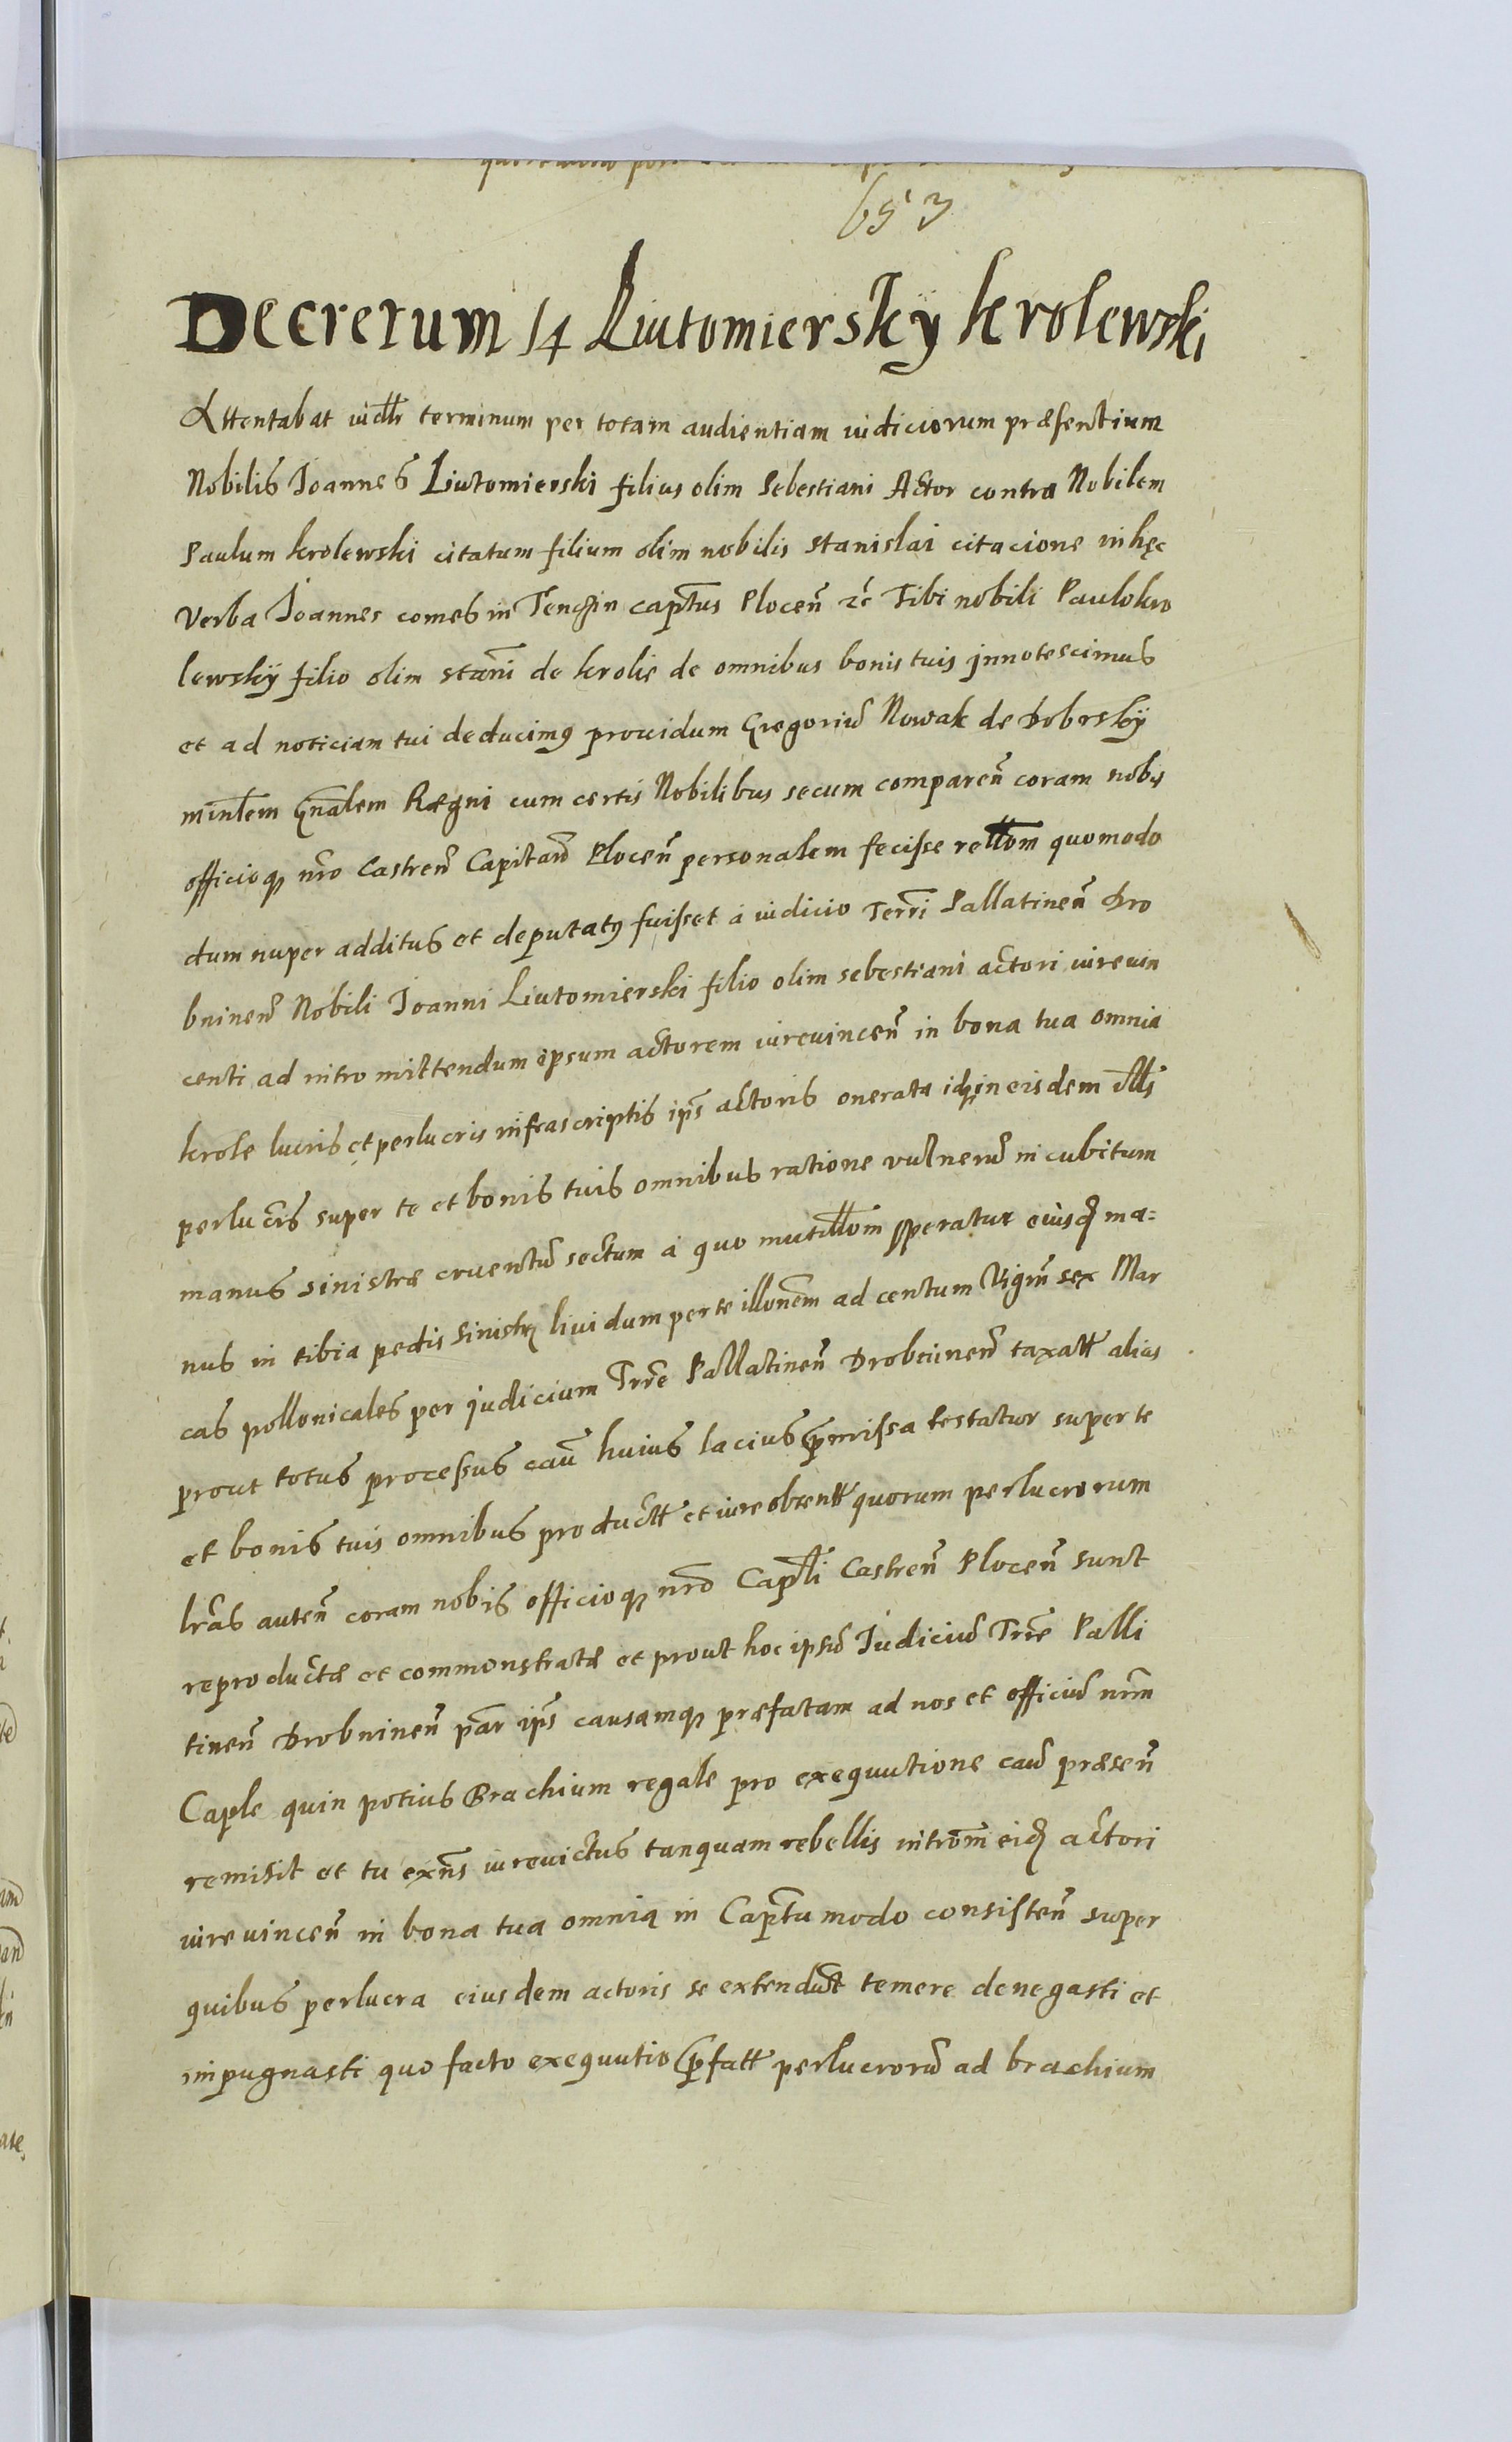 653
Decretum 14 Liutomiersky Krolewski
Attentabat iudlr terminum per totam audientiam iudiciorum præsentium
Nobilis Joannes Liutomierski filius olim Sebestiani Actor contra Nobilem
Paulum Krolewski citatum filium olim nobilis Stanislai citacione in hęc
verba Joannes comes in Tenczin captus Plocen̄ zc̄ Tibi nobili Paulo Kro
lewskÿ filio olim stani de Krolie de omnibus bonis tuis innotescimus
et ad noticiam tui deducimꝰ prouidum Gregoriū Nowak de DobrskŸ
minlem Gnalem Rægni cum certis Nobilibus secum comparen̄ coram nobis
officioqꝫ nro Castren̄ Capitan̄ Plocen̄ personalem fecisse rellom quomodo
dum nuper additus et deputatꝰ fuisset à iudicio Terri Pallatinen̄ Dro
bninen̄ Nobili Joanni Liutomierski filio olim sebestiani actori iurevin
centi ad intromittendum ipsum actorem iurevincen̄ in bona tua omnia
Krole lucris et perlucris infrascriptis ips actoris onerata idqꝫ in eisdem
perlucris super te et bonis tuis omnibus ratione vulnerū in cubitum
manus sinistræ cruentū sectum à quo mutillom speratur eiusdꝫ ma=
nus in tibia pedis sinistrę liuidum per te illonem ad centum Vigin̄ sex Mar
cas pollonicales per judicium Trre Pallatinen̄ Drobninen̄ taxatt alias
prout totus processus caū huius lacius p̄missa testatur super te
et bonis tuis omnibus productt et iure obtentt quorum perlucrorum
lras auten̄ coram nobis officioqꝫ nro Captli Castren̄ Plocen̄ sunt
reproductæ et commonstratæ et prout hoc ipsū Judiciū Trre Palla
tinen̄ Drobninen̄ par ips causamqꝫ præfatam ad nos et officiū nrm
Caple quin potius Brachium regale pro exequutione caū præsen̄
remisit et tu exns iurevictus tanquam rebellis introm eidꝫ actori
iurevincen̄ in bona tua omnia in Captu modo consisten̄ super
quibus perlucra eiusdem actoris se extendūt temere denegasti et
impugnasti quo facto exequutio p̄fatt perlucrorū ad brachium